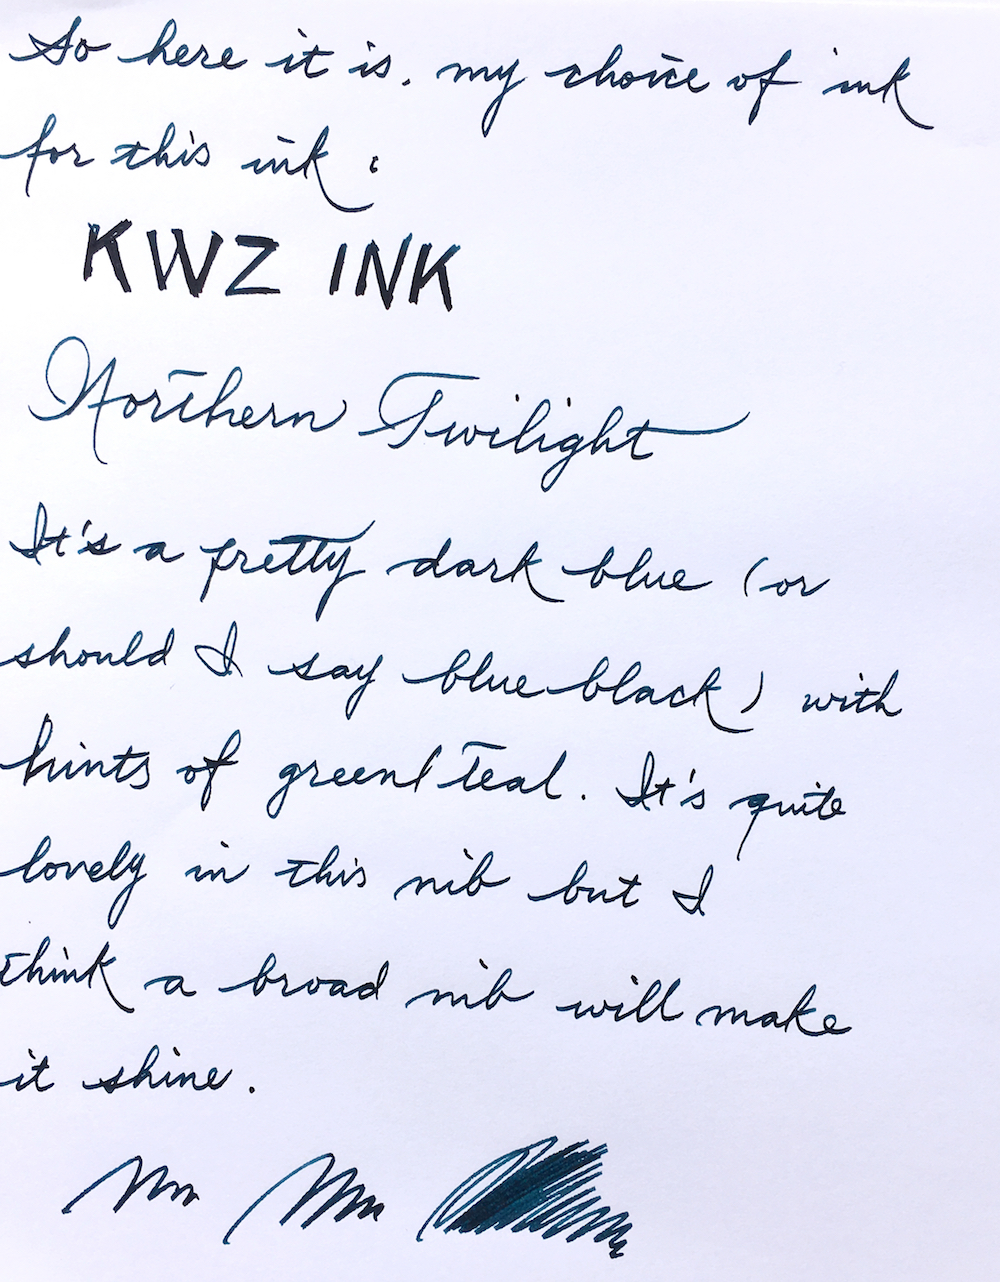 So here it is. my choice of ink
for this ink :
KWZ INK
Northern Twilight
It's a pretty dark blue (or
should I say blue-black) with
hints of green/teal. It's quite
lovely in this nib but I
think a broad nib will make
it shine.